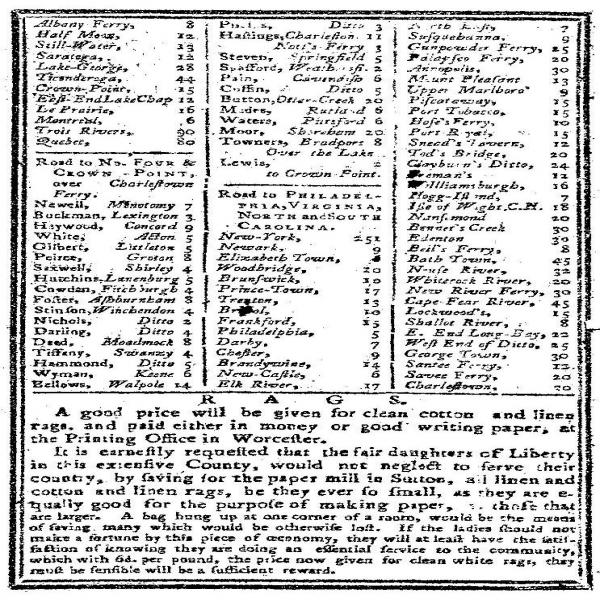 Albany Ferry, 8
Half Moon, 12
Still-Water, 13
Saratoga, 12
Lake-George, 28
Ticonderoga, 44
Crown-Point, 15
East End Lake Chap 12
La Prairie, 16
Montreal, 6
Trois Rivers, 90
Quebec, 80
Road to No. FOUR &
CROWN-POINT,
over Charlestown
Ferry.
Newell, Menotomy 7
Buckman, Lexington 3
Haywood, Concord 9
White, Acton 5
Gilbert, Littleton 5
Peirce, Groton 8
Sarwell, Shirley 4
Hutchins, Lunenburg 5
Cowdan, Fitchburg 4
Foster, Ashburnham 8
Stinson, Winchendon 4
Nichols, Ditto 2
Darling, Ditto 4
Deed, Moadmock 8
Tiffany, Swanzy 4
Hammond, Ditto 5
Wyman, Keene 6
Bellows, Walpole 14
Ditto 3
Hastings, Charleston 11
Nott's Ferry 3
Steven, Springfield 5
Spafford, 2
Pain, Cavendish 6
Coffin, Ditto 5
Button, Otter-Creek 20
Mead, Rutland 6
Waters, Pittsford 6
Moor, Shoreham 20
Towners, Bradport 8
Over the Lake
Lewis, 2
to Crown Point.
Road to PHILADEL-
PHIA, VIRGINIA,
NORTH and SOUTH
CAROLINA.
New-York, 251
Newark, 9
Elizabeth Town, 6
Woodbridge, 10
Brunswick, 10
Prince-Town, 17
Trenton, 13
Bristol, 10
Frankford, 15
Philadelphia, 5
Darby, 7
Chester, 9
Brandywine, 14
New-Castle, 6
Elk River, 17
North East, 7
Susquehanna, 9
Gunpowder Ferry, 25
Patapsco Ferry, 20
Anopolis, 30
Mount Pleasant 13
Upper Marlboro' 9
Piscataway, 15
Port Tobacco, 15
Hoe's Ferry, 10
Port Royal, 15
Snead's Tavern, 12
Tod's Bridge, 20
Clayburn's Ditto, 24
Freeman's 12
Williamsburgh, 16
Hogg-Island, 7
Isle of Wight C.H. 18
Nansemond 20
Bennet's Creek 30
Edenton 30
Bell's Ferry, 8
Bath Town, 45
Nuse River, 32
Whitenock River, 20
New River Ferry, 30
Cape Fear River, 45
Lockwood's, 15
Shallot River, 8
E. End Long-Bay, 22
West End of Ditto, 25
George Town, 30
Santee Ferry, 12
Savee Ferry, 20
Charlestown, 20
RAGS.
A good price will be given for clean cotton and linen
rags, and paid either in money or good writing paper, at
the Printing Office in Worcester.
It is earnestly requested that the fair daughters of Liberty
in this extensive County, would not neglect to serve their
country, by saving for the paper mill in Sutton, all linen and
cotton and linen rags, be they ever so small, as they are e-
qually good for the purpose of making paper, as those that
are larger. A bag hung up at one corner of a room, would be the means
of saving many which would be otherwise lost. If the ladies should not
make a fortune by this piece of œconomy, they will at least have the satis-
faction of knowing they are doing an essential service to the community,
which with 8d. per pound, the price now given for clean white rags, they
must be sensible will be a sufficient reward.